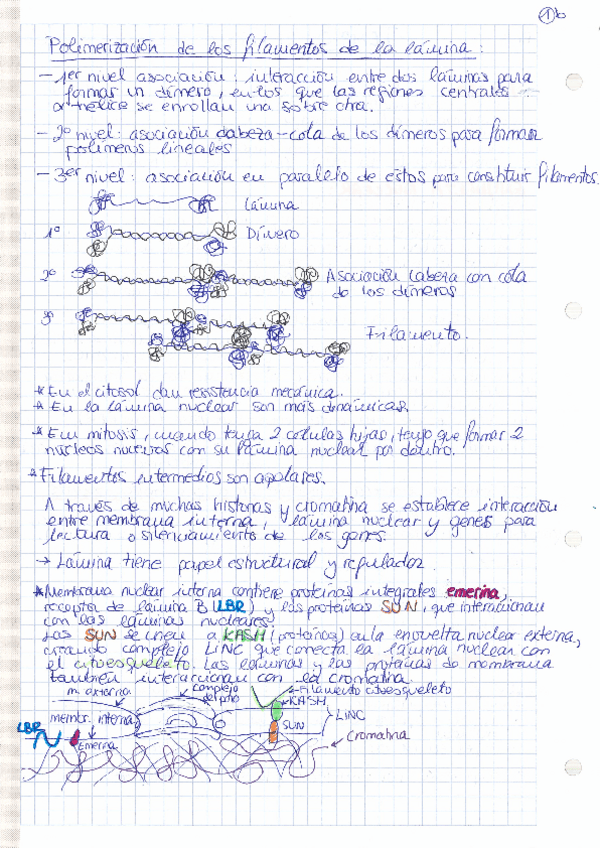 1b
Polimerización de los filamentos de la lámina:
- 1er nivel asociación: interacción entre dos láminas para
formar un dímero, en los que las regiones centrales
α hélice se enrollan una sobre otra.
- 2º nivel: asociación cabeza-cola de los dímeros para formar
polímeros lineales
- 3er nivel: asociación en paralelo de estos para constituir filamentos.
Lámina
1º Dímero
2º Asociación cabeza con cola
de los dímeros
3º Filamento.
* En el citosol dan resistencia mecánica.
* En la lámina nuclear son más dinámicas.
* En mitosis, cuando tengo 2 células hijas, tengo que formar 2
núcleos nuevos con su lámina nuclear por dentro.
* Filamentos intermedios son apolares.
A través de muchas histonas y cromatina se establece interacción
entre membrana interna, lámina nuclear y genes para
lectura o silenciamiento de los genes.
→ Lámina tiene papel estructural y regulador.
* Membrana nuclear interna contiene proteínas integrales emerina,
receptor de lámina B (LBR) y las proteínas SUN, que interaccionan
con las láminas nucleares.
Las SUN se unen a KASH (proteínas) en la envuelta nuclear externa,
creando complejo LINC que conecta la lámina nuclear con
el citoesqueleto. Las láminas y las proteínas de membrana
también interaccionan con la cromatina.
m. externa
complejo
del poro
Filamento citoesqueleto
KASH
membr. interna
SUN
LINC
LBR
Emerina
Cromatina